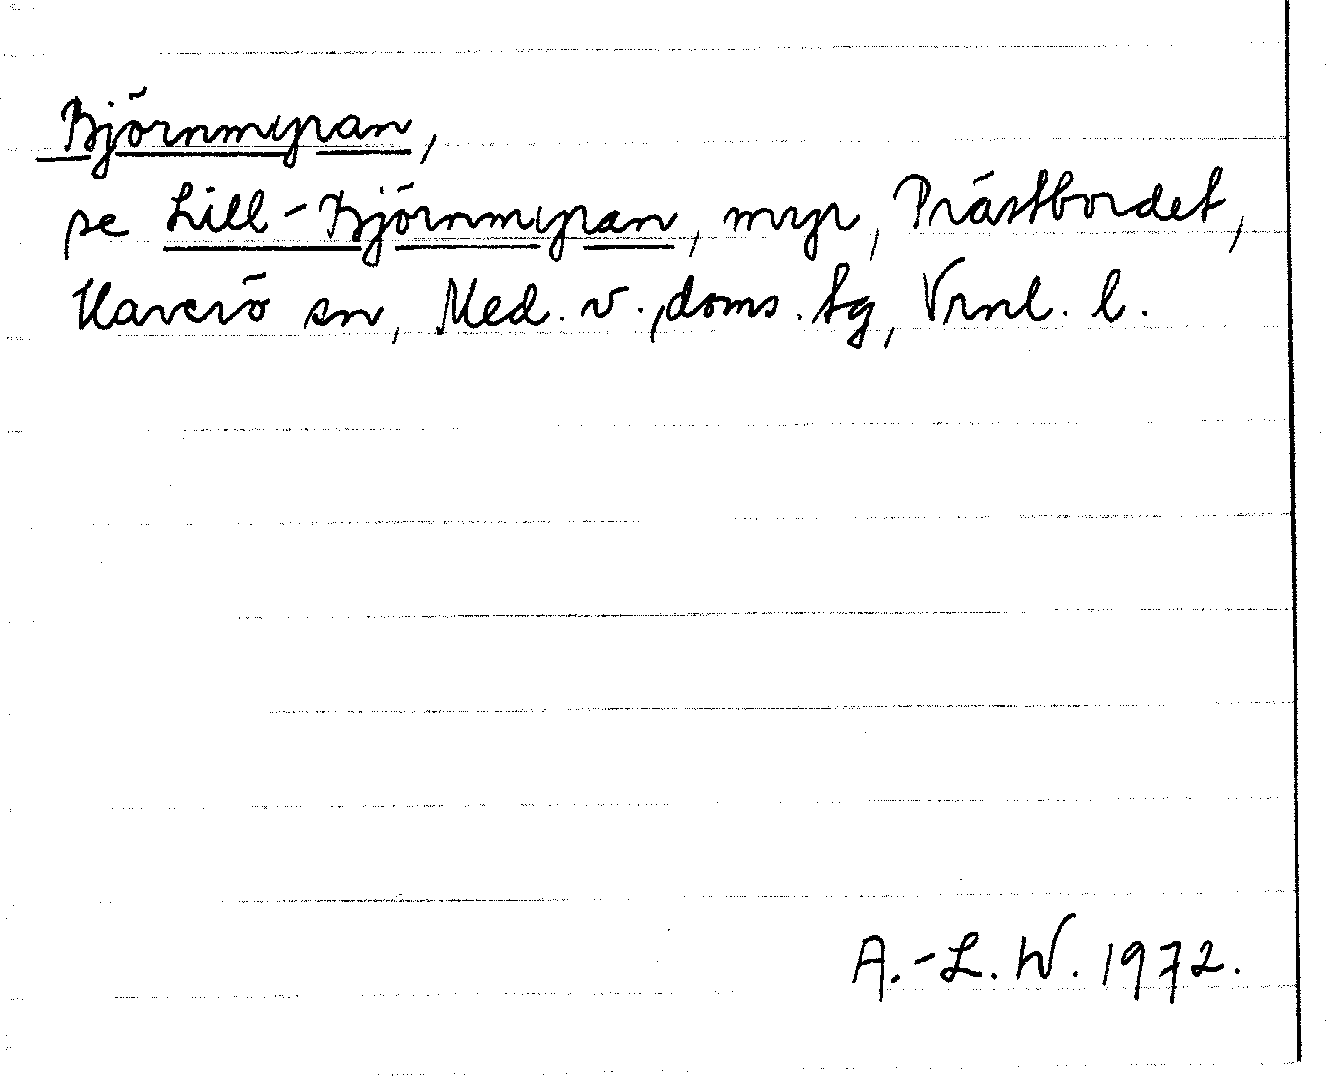 Björnmyran,
se Lill-Björnmyran, myr, Prästbordet,
Haverö sn, Med. v. doms. tg, Vrnl. l.
A.-L. W. 1972.